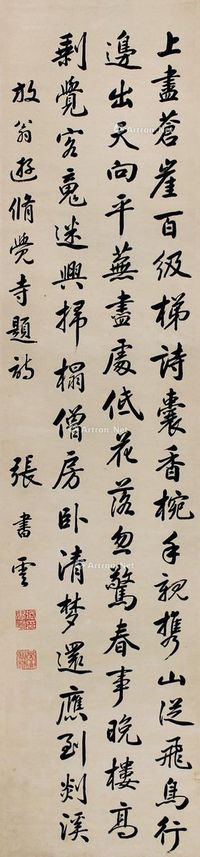 上盡蒼崖百級梯詩囊香椀手親携山從飛鳥行
邊出天向平蕪盡處低花落忽驚春事晚樓高
剩覺客䰟迷興掃榻僧房卧清梦還應到剡溪
放翁遊脩覺寺題詩 張書雲
Artron.Net
Artron.Net